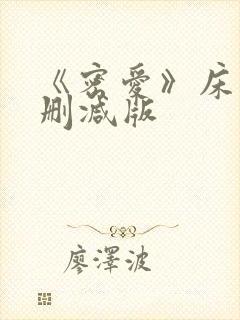 《密爱》床
删减版
廖澤波